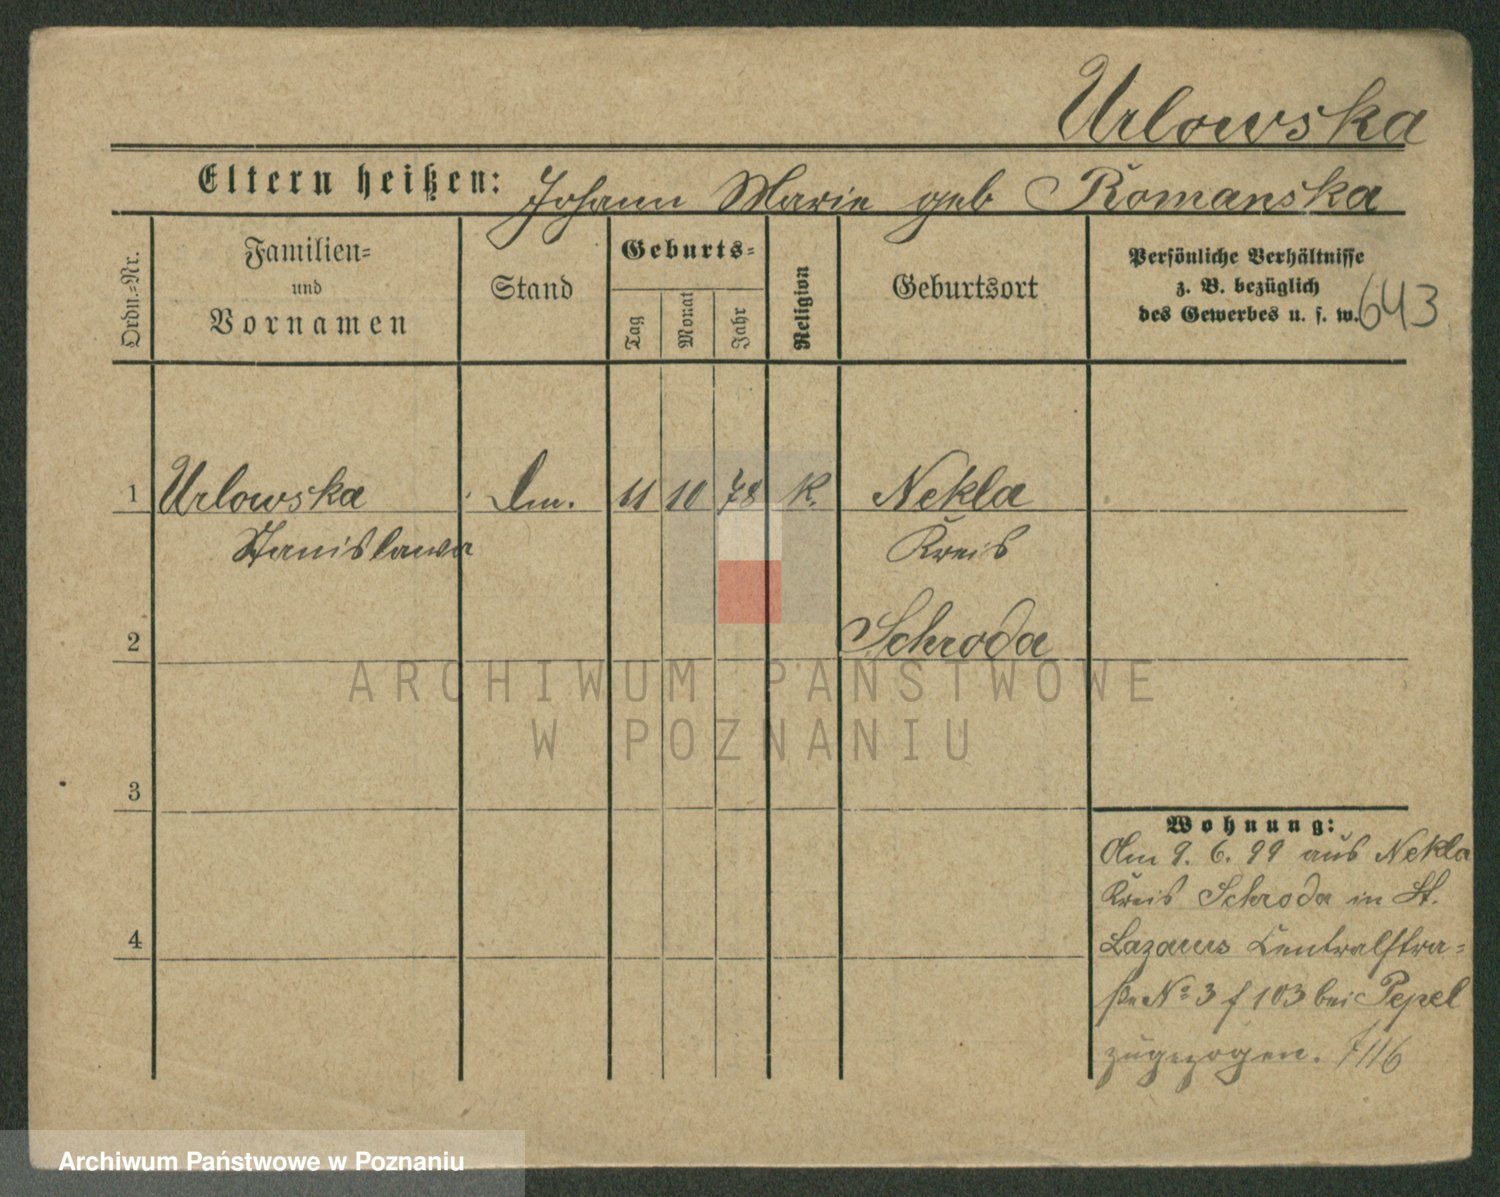 Urlowska
Eltern heißen: Johann Marie geb Romanska
Ordn.-Nr.
Familien-
und
Vornamen
Stand
Geburts-
Tag
Monat
Jahr
Religion
Geburtsort
Persönliche Verhältnisse
z. B. bezüglich
des Gewerbes u. s. w.
643
1 Urlowska 11 10 78 K. Nekla
Stanislawa Kreis
2 Schroda
ARCHIWUM PAŃSTWOWE
W POZNANIU
3
Wohnung:
Am 9. 6. 99 aus Nekla
Kreis Schroda in St.
4
Lazarus Centralstra-
ße No 3 f 103 bei Pepel
zugezogen. 7116
Archiwum Państwowe w Poznaniu